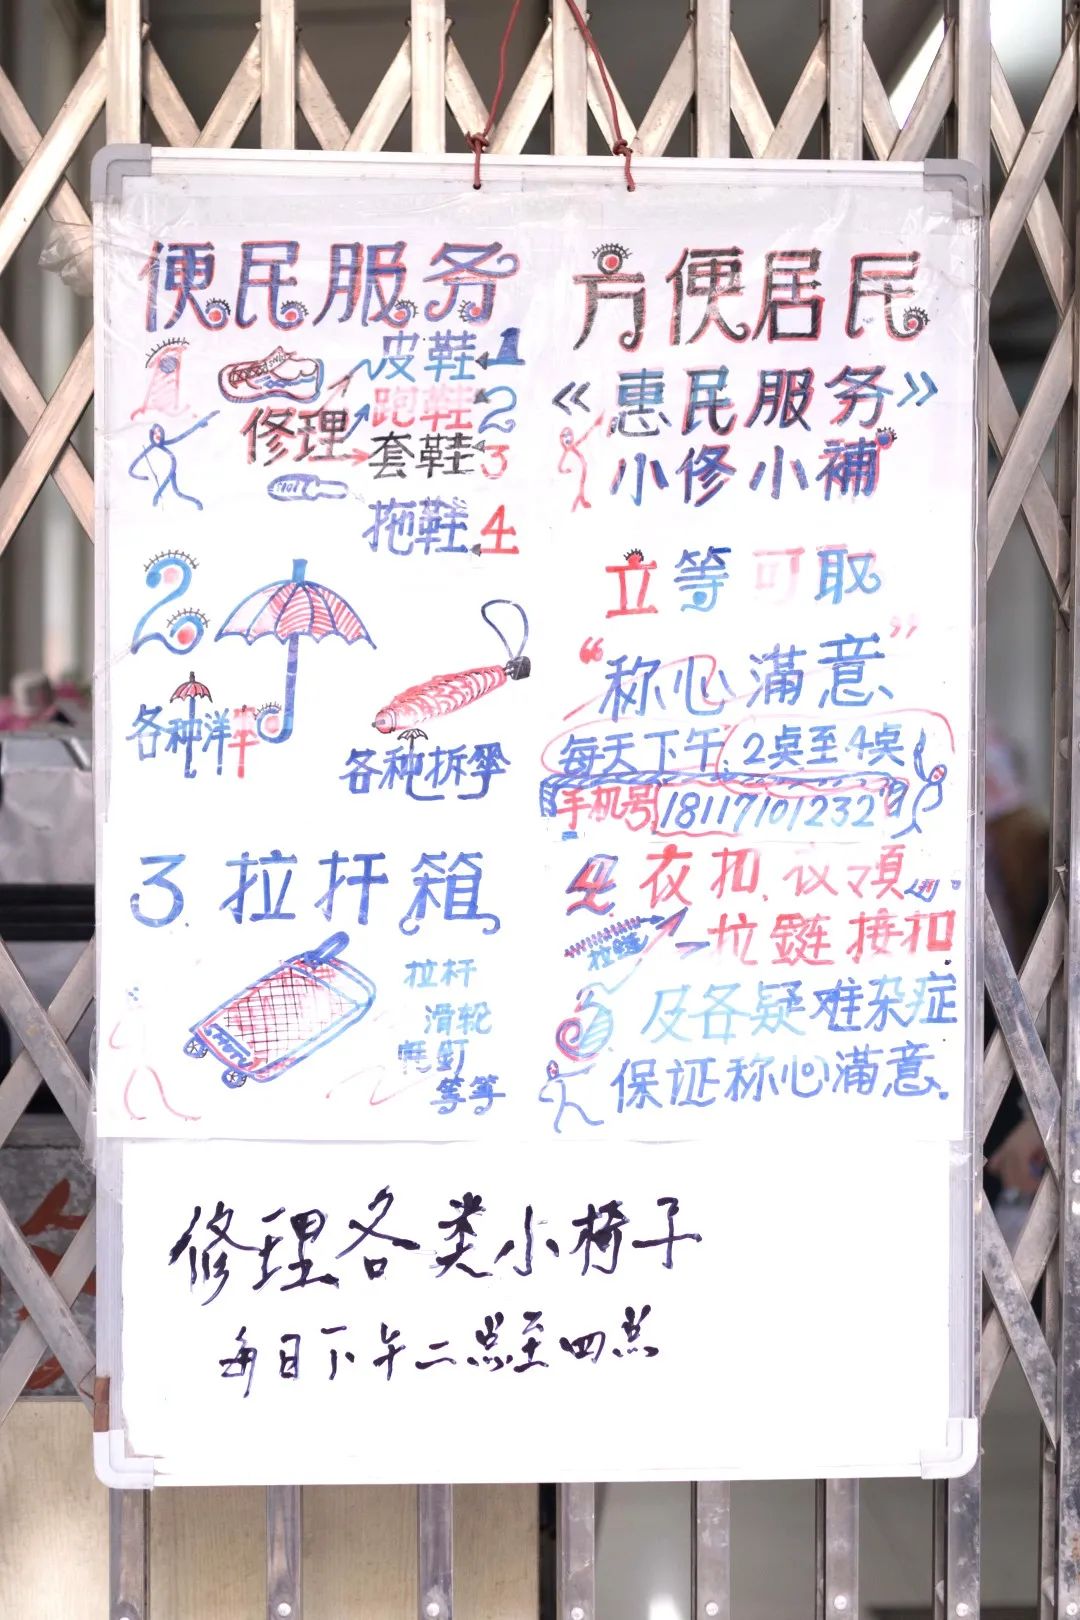 便民服务
1
修理
皮鞋 1
跑鞋 2
套鞋 3
拖鞋 4
2
各种洋伞
各种拆伞
3. 拉杆箱
拉杆
滑轮
等等
方便居民
《惠民服务》
小修小補
立等可取
“称心滿意”
每天下午2点至4点
手机号 18117101232
4 衣扣、衣
拉鏈
拉鏈 接扣
5 及各疑难杂症
保证称心滿意.
修理各类小椅子
每日下午二点至四点